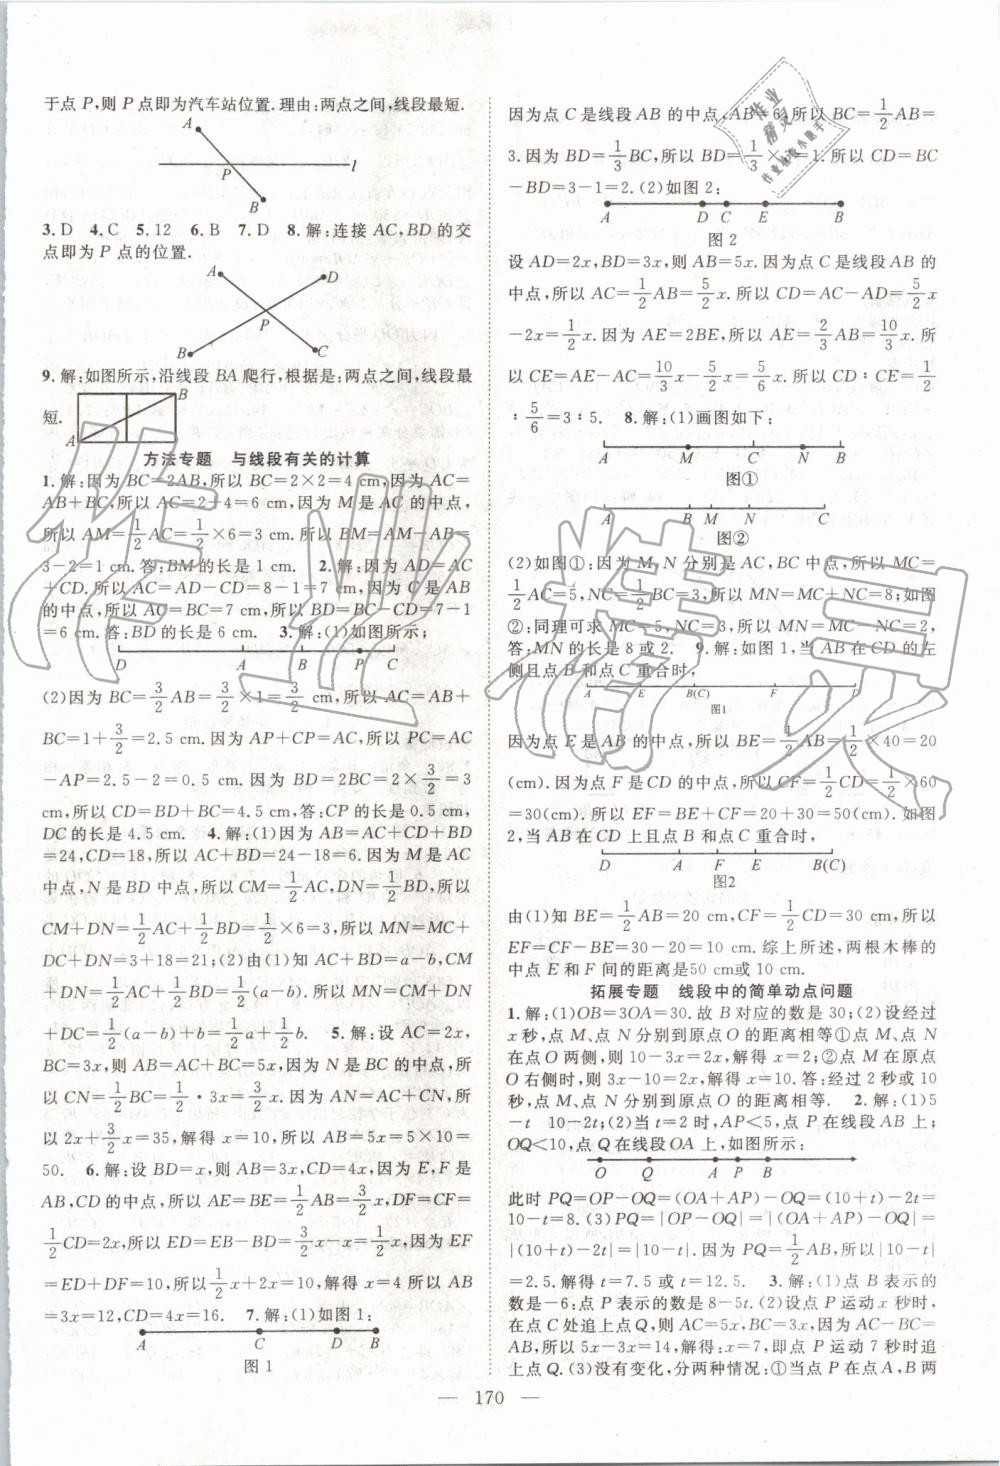 于点 P,则 P 点即为汽车站位置.理由:两点之间,线段最短.
A
P
l
B
3.D 4.C 5.12 6.B 7.D 8.解:连接 AC,BD 的交
点即为 P 点的位置.
A
D
P
B
C
9.解:如图所示,沿线段 BA 爬行,根据是:两点之间,线段最
短.
B
A
方法专题 与线段有关的计算
1.解:因为 BC=2AB,所以 BC=2×2=4 cm,因为 AC=
AB+BC,所以 AC=2+4=6 cm,因为 M 是 AC 的中点,
所以 AM=1/2AC=1/2×6=3 cm.所以 BM=AM-AB=
3-2=1 cm.答:BM的长是 1 cm. 2.解:因为 AD=AC
+CD.所以 AC=AD-CD=8-1=7 cm,因为 C 是 AB
的中点,所以 AC=BC=7 cm,所以 BD=BC-CD=7-1
=6 cm.答:BD 的长是 6 cm. 3.解:(1)如图所示;
D A B P C
(2)因为 BC=3/2AB=3/2×1=3/2 cm,所以 AC=AB+
BC=1+3/2=2.5 cm.因为 AP+CP=AC,所以 PC=AC
-AP=2.5-2=0.5 cm.因为 BD=2BC=2×3/2=3
cm,所以 CD=BD+BC=4.5 cm,答:CP 的长是 0.5 cm,
DC 的长是 4.5 cm. 4.解:(1)因为 AB=AC+CD+BD
=24,CD=18,所以 AC+BD=24-18=6.因为 M 是 AC
中点,N 是 BD 中点,所以 CM=1/2AC,DN=1/2BD,所以
CM+DN=1/2AC+1/2BD=1/2×6=3,所以 MN=MC+
DC+DN=3+18=21;(2)由(1)知 AC+BD=a-b,CM
+DN=1/2AC+1/2BD=1/2(a-b).所以 MN=CM+DN
+DC=1/2(a-b)+b=1/2a+1/2b. 5.解:设 AC=2x,
BC=3x,则 AB=AC+BC=5x,因为 N 是 BC 的中点,所
以 CN=1/2BC=1/2·3x=3/2x.因为 AN=AC+CN,所
以 2x+3/2x=35,解得 x=10,所以 AB=5x=5×10=
50. 6.解:设 BD=x,则 AB=3x,CD=4x,因为 E,F 是
AB,CD 的中点,所以 AE=BE=1/2AB=3/2x,DF=CF=
1/2CD=2x,所以 ED=EB-BD=3/2x-x=1/2x,因为 EF
=ED+DF=10,所以1/2x+2x=10,解得 x=4 所以 AB
=3x=12,CD=4x=16. 7.解:(1)如图 1:
A C D B
图 1
因为点 C 是线段 AB 的中点,AB=6,所以 BC=1/2AB=
3.因为 BD=1/3BC,所以 BD=1/3×3=1.所以 CD=BC
-BD=3-1=2.(2)如图 2:
A D C E B
图 2
设 AD=2x,BD=3x,则 AB=5x.因为点 C 是线段 AB 的
中点,所以 AC=1/2AB=5/2x,所以 CD=AC-AD=5/2x
-2x=1/2x.因为 AE=2BE,所以 AE=2/3AB=10/3x.所
以 CE=AE-AC=10/3x-5/2x=5/6x.所以 CD∶CE=1/2
∶5/6=3∶5. 8.解:(1)画图如下:
A M C N B
图①
A B M N C
图②
(2)如图①:因为 M,N 分别是 AC,BC 中点,所以 MC=
1/2AC=5,NC=1/2BC=3,所以 MN=MC+NC=8;如图
②:同理可求 MC=5,NC=3,所以 MN=MC-NC=2,
答:MN 的长是 8 或 2. 9.解:如图 1,当 AB 在 CD 的左
侧且点 B 和点 C 重合时,
A E B(C) F D
图1
因为点 E 是 AB 的中点,所以 BE=1/2AB=1/2×40=20
(cm).因为点 F 是 CD 的中点,所以 CF=1/2CD=1/2×60
=30(cm).所以 EF=BE+CF=20+30=50(cm).如图
2,当 AB 在 CD 上且点 B 和点 C 重合时,
D A F E B(C)
图2
由(1)知 BE=1/2AB=20 cm,CF=1/2CD=30 cm,所以
EF=CF-BE=30-20=10 cm.综上所述,两根木棒的
中点 E 和 F 间的距离是50 cm或 10 cm.
拓展专题 线段中的简单动点问题
1.解:(1)OB=3OA=30.故 B 对应的数是 30;(2)设经过
x 秒,点 M、点 N 分别到原点 O 的距离相等①点 M、点 N
在点 O 两侧,则 10-3x=2x,解得 x=2;②点 M 在原点
O 右侧时,则 3x-10=2x,解得 x=10.答:经过 2 秒或 10
秒,点 M、点 N 分别到原点 O 的距离相等. 2.解:(1)5
-t 10-2t;(2)当 t=2 时,AP<5,点 P 在线段 AB 上;
OQ<10,点 Q 在线段 OA 上,如图所示:
O Q A P B
此时 PQ=OP-OQ=(OA+AP)-OQ=(10+t)-2t=
10-t=8.(3)PQ=|OP-OQ|=|(OA+AP)-OQ|=
|(10+t)-2t|=|10-t|.因为 PQ=1/2AB,所以|10-t|
=2.5.解得 t=7.5 或 t=12.5. 3.解:(1)点 B 表示的
数是-6;点 P 表示的数是 8-5t.(2)设点 P 运动 x 秒时,
在点 C 处追上点 Q,则 AC=5x,BC=3x,因为 AC-BC=
AB,所以 5x-3x=14,解得:x=7,即点 P 运动 7 秒时追
上点 Q.(3)没有变化,分两种情况:①当点 P 在点 A,B 两
— 170 —